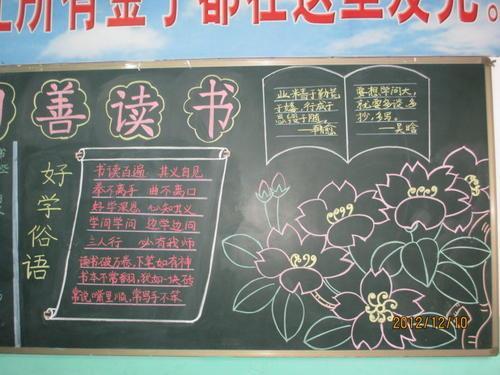 所有金子都在这里发光。
善读书
好学俗语
书读百遍 其义自见
拳不离手 曲不离口
好学深思 心知其义
学问学问 边学边问
三人行 必有我师
读书破万卷,下笔如有神
书本不常翻,犹如一块砖
常说嘴里顺,常写手不笨
业精于勤荒
于嬉,行成于
思毁于随。
——韩愈
要想学问大,
就要多读、多
抄、多写。
——吴晗
2012/12/10